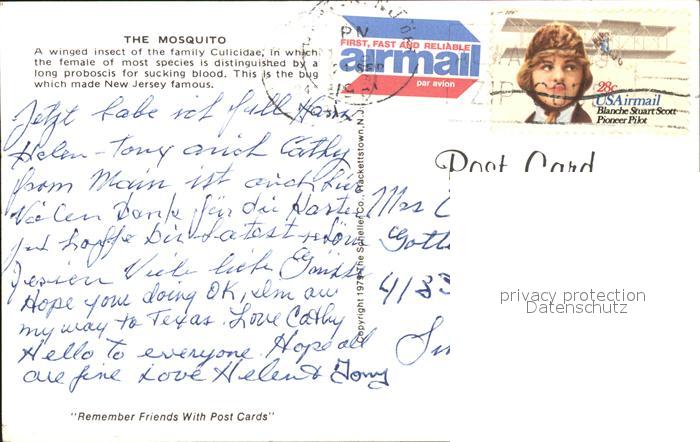 THE MOSQUITO
A winged insect of the family Culicidae, in which
the female of most species is distinguished by a
long proboscis for sucking blood. This is the bug
which made New Jersey famous.
PM
SEP
FIRST, FAST AND RELIABLE
airmail
par avion
28c
USAirmail
Blanche Stuart Scott
Pioneer Pilot
Post Card
Jetzt habe ich full Haus
Helen - Tony auch Cathy
from Main ist auch hir
Vielen Dank für die Karte
Ich hoffe Du hatest schöne
Ferien Viele liebe Grüsse
Hope your doing OK, I'm on
my way to Texas. Love Cathy
Hello to everyone. Hope all
are fine Love Helen & Tony
Mrs
4133
Copyright 1979 The Scheller Co., Hackettstown, N.J.
privacy protection
Datenschutz
"Remember Friends With Post Cards"